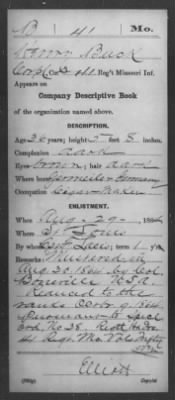 B 41 Mo.
Henry Buck
Corpl Co 41 Reg't Missouri Inf.
Appears on
Company Descriptive Book
of the organization named above.
DESCRIPTION.
Age 36 years; height 5 feet 8 inches.
Complexion Dark
Eyes Brown; hair Dark
Where born Germany
Occupation Cigar Maker
ENLISTMENT.
When Aug 29, 1864
Where St Louis
By whom Capt; term 1 y'rs
Remarks: Mustered in
by Col
Bonneville U.S.A.
Reduced to the
ranks
Pursuant to Spcl
Ord No 38.
41 Regt Mo Vol
Elliott
Copyist.